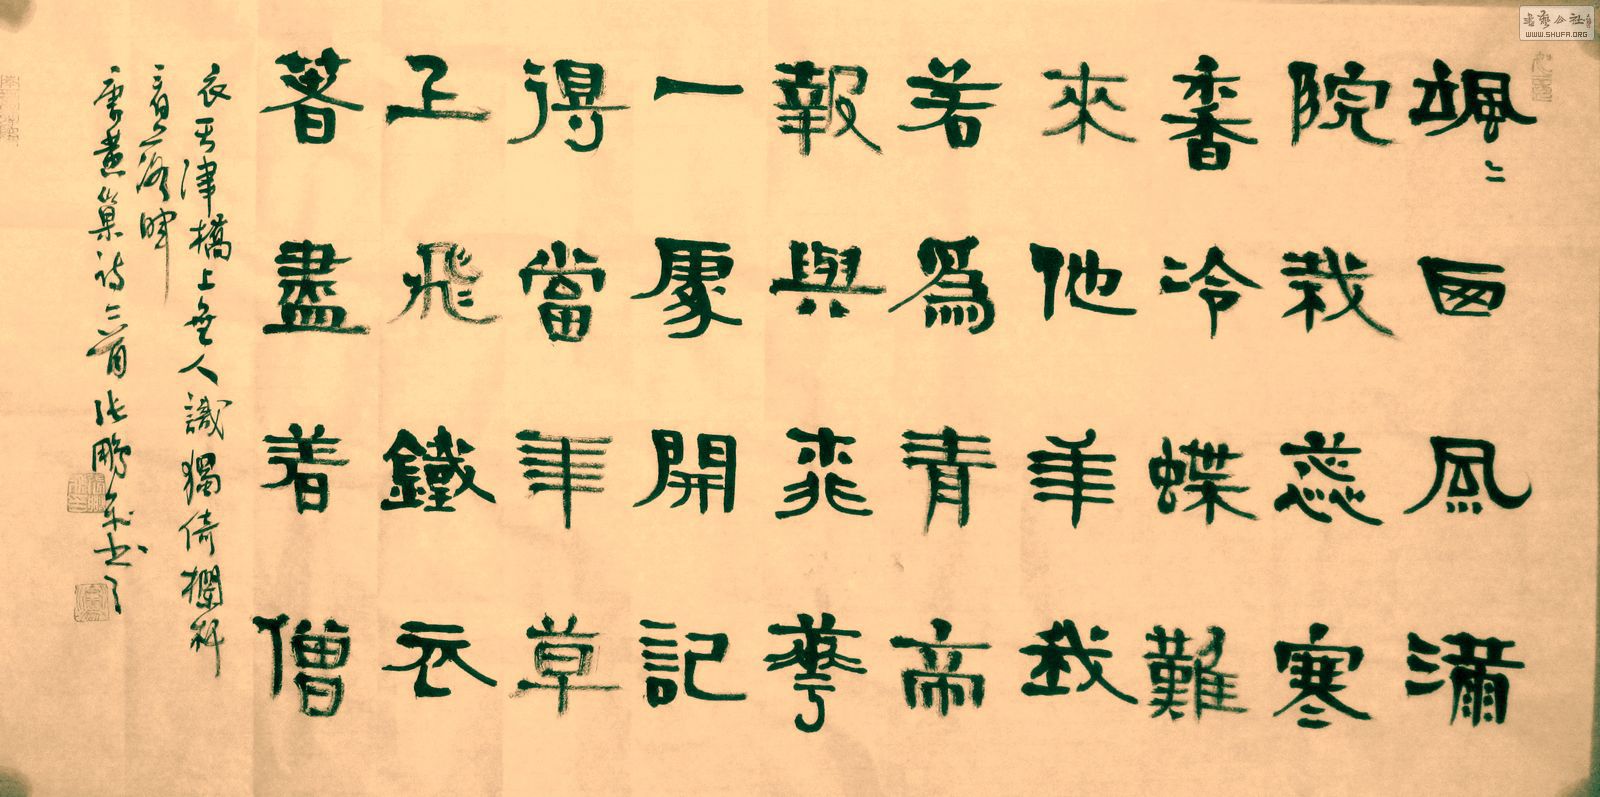 颯〻西風滿
院栽蕊寒
香冷蝶難
來他年我
若為青帝
報與桃華
一處開記
得當年草
上飛鐵衣
著盡着僧
衣天津橋上無人識獨倚欄杆
看落暉
唐黃巢詩二首張鵬書之
書藝公社
WWW.SHUFA.ORG